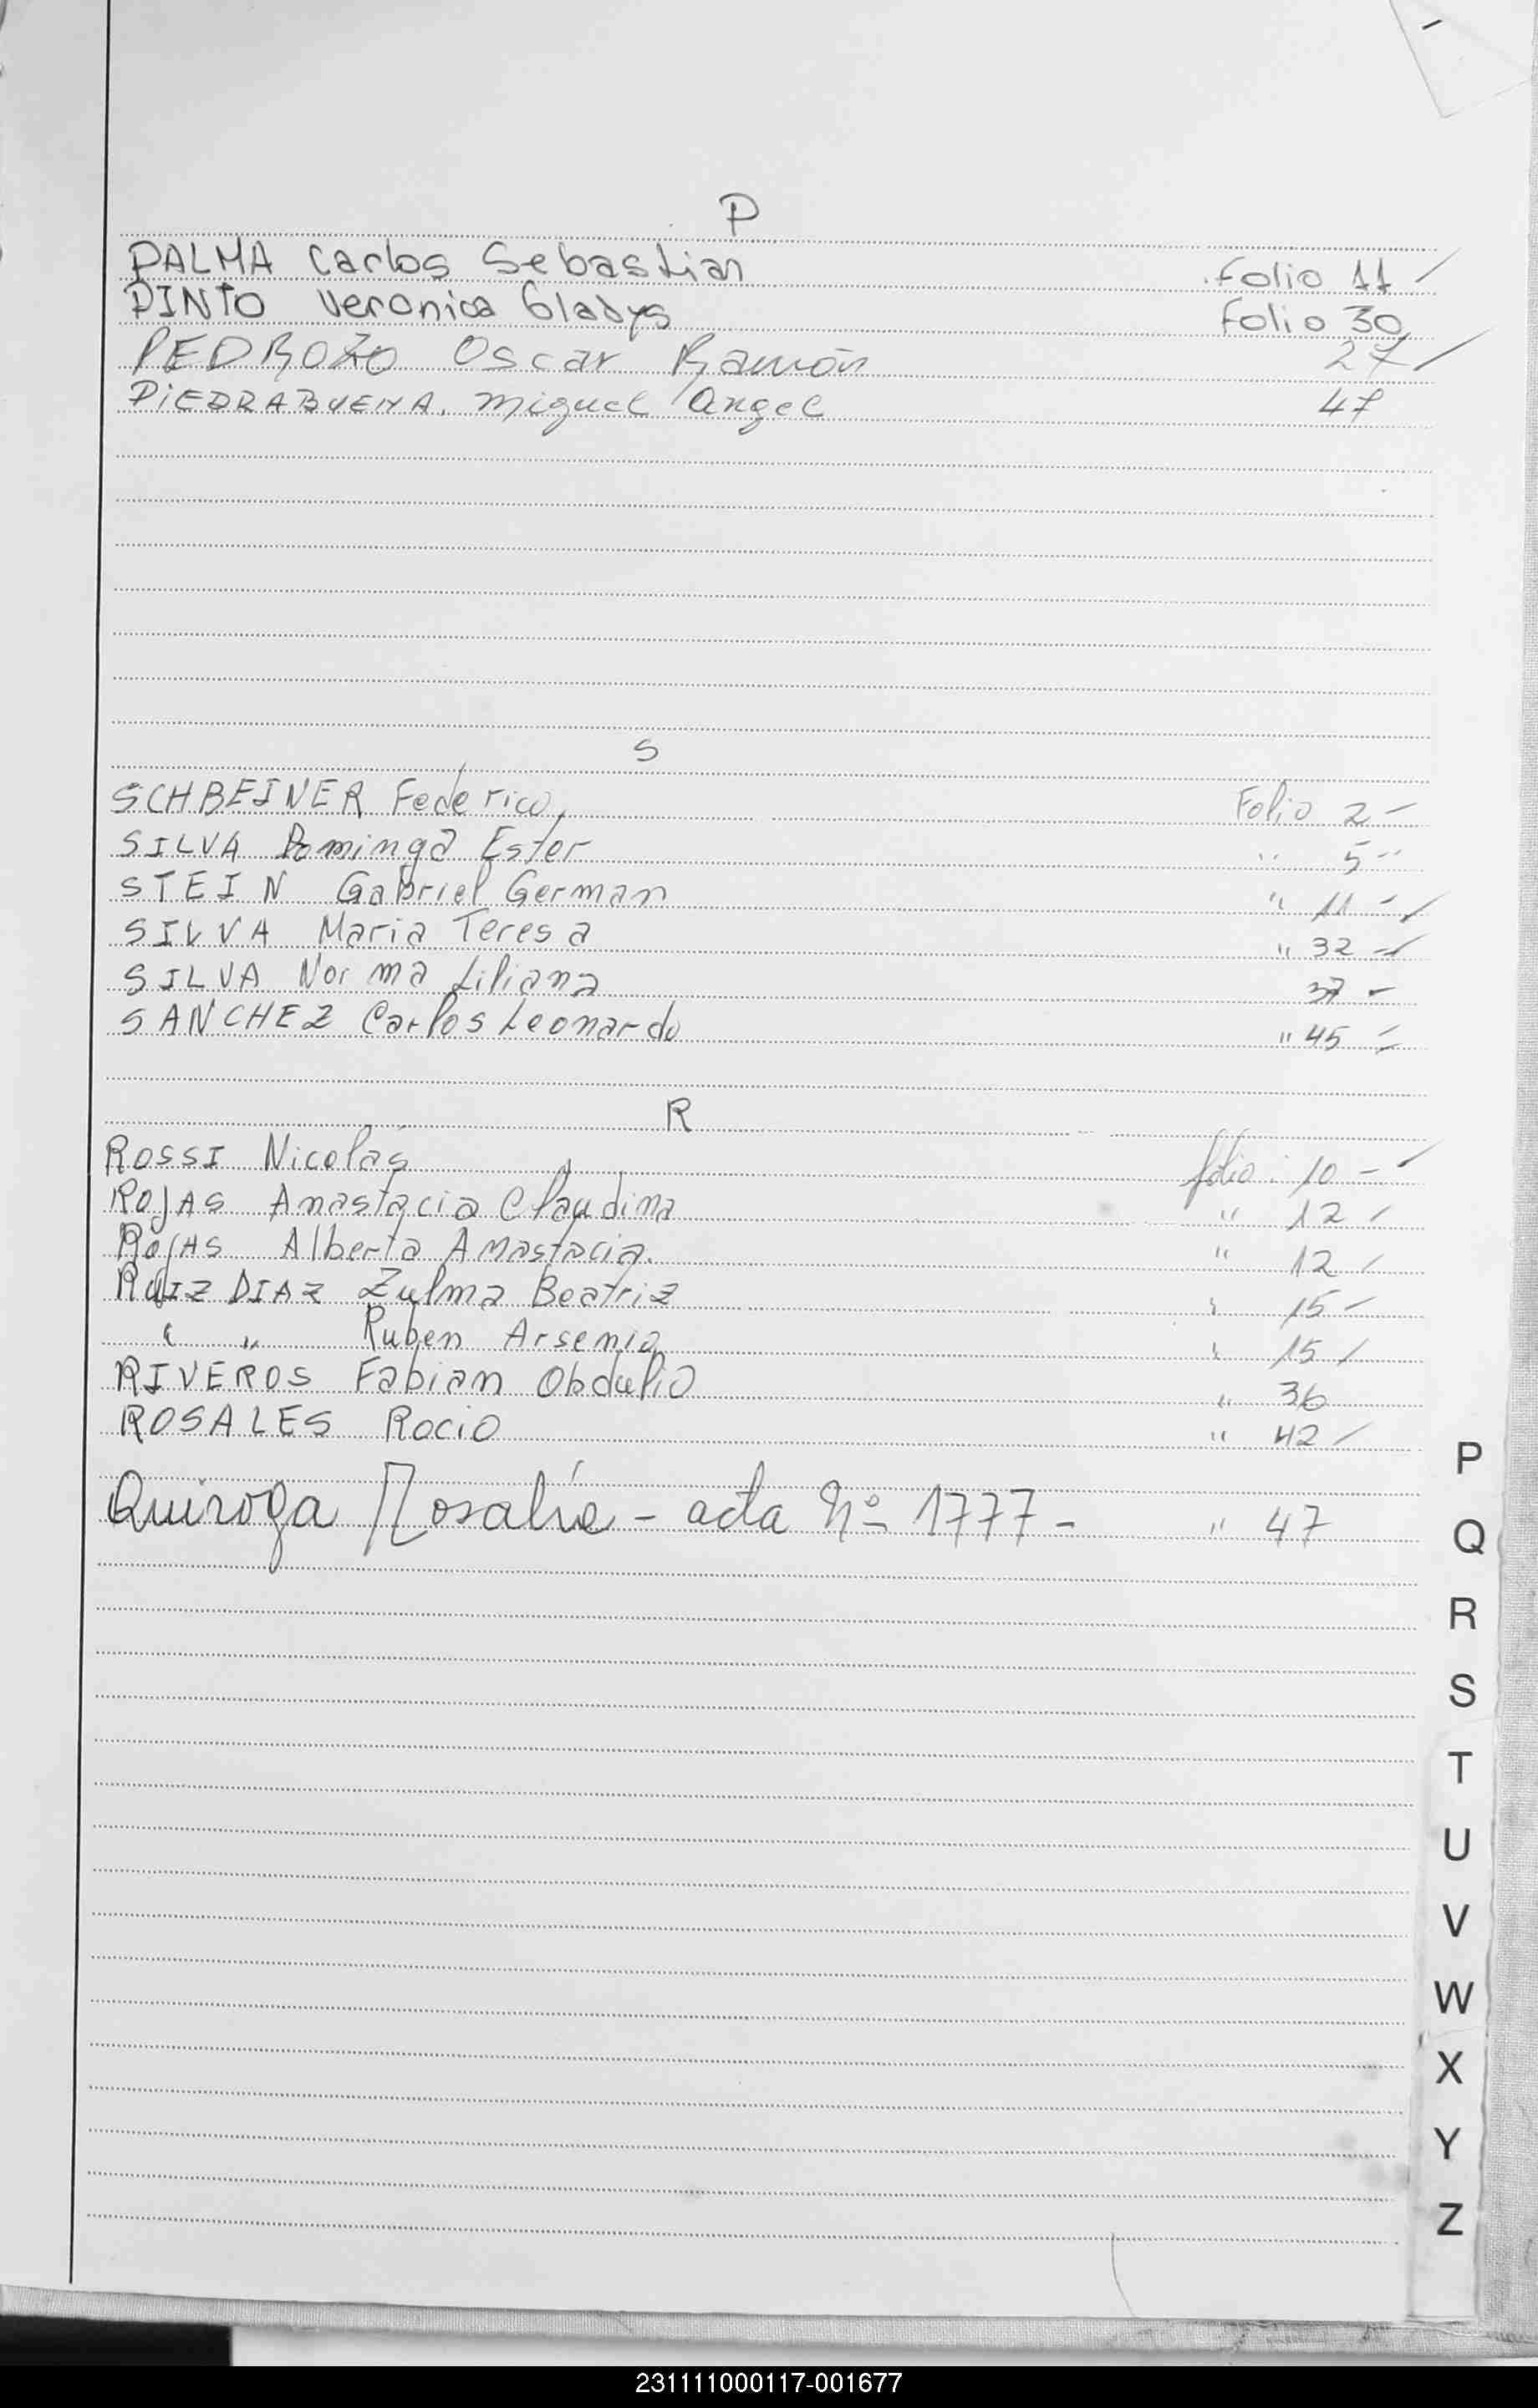 P
PALMA Carlos Sebastian Folio 11
PINTO Veronica Gladys Folio 30
PEDROZO Oscar Ramón 27
PIEDRABUENA. Miguel Angel 47
S
SCHBEINER Federico, Folio 2 -
SILVA Dominga Ester " 5 "
STEIN Gabriel German " 11 -
SILVA Maria Teresa " 32 -
SILVA Norma Liliana 37 -
SANCHEZ Carlos Leonardo " 45 -
R
ROSSI Nicolás folio: 10 -
ROJAS Anastacia Claudina " 12
ROJAS Alberta Anastacia. " 12
RUIZ DIAZ Zulma Beatriz " 15 -
" " Ruben Arsenio " 15
RIVEROS Fabian Obdulio " 36
ROSALES Rocio " 42
Quiroga Rosalía - acta Nº 1777 - " 47
P
Q
R
S
T
U
V
W
X
Y
Z
231111000117-001677